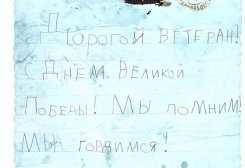 Дорогой ветеран!
С Днём Великой
Победы! Мы помним!
Мы гордимся!